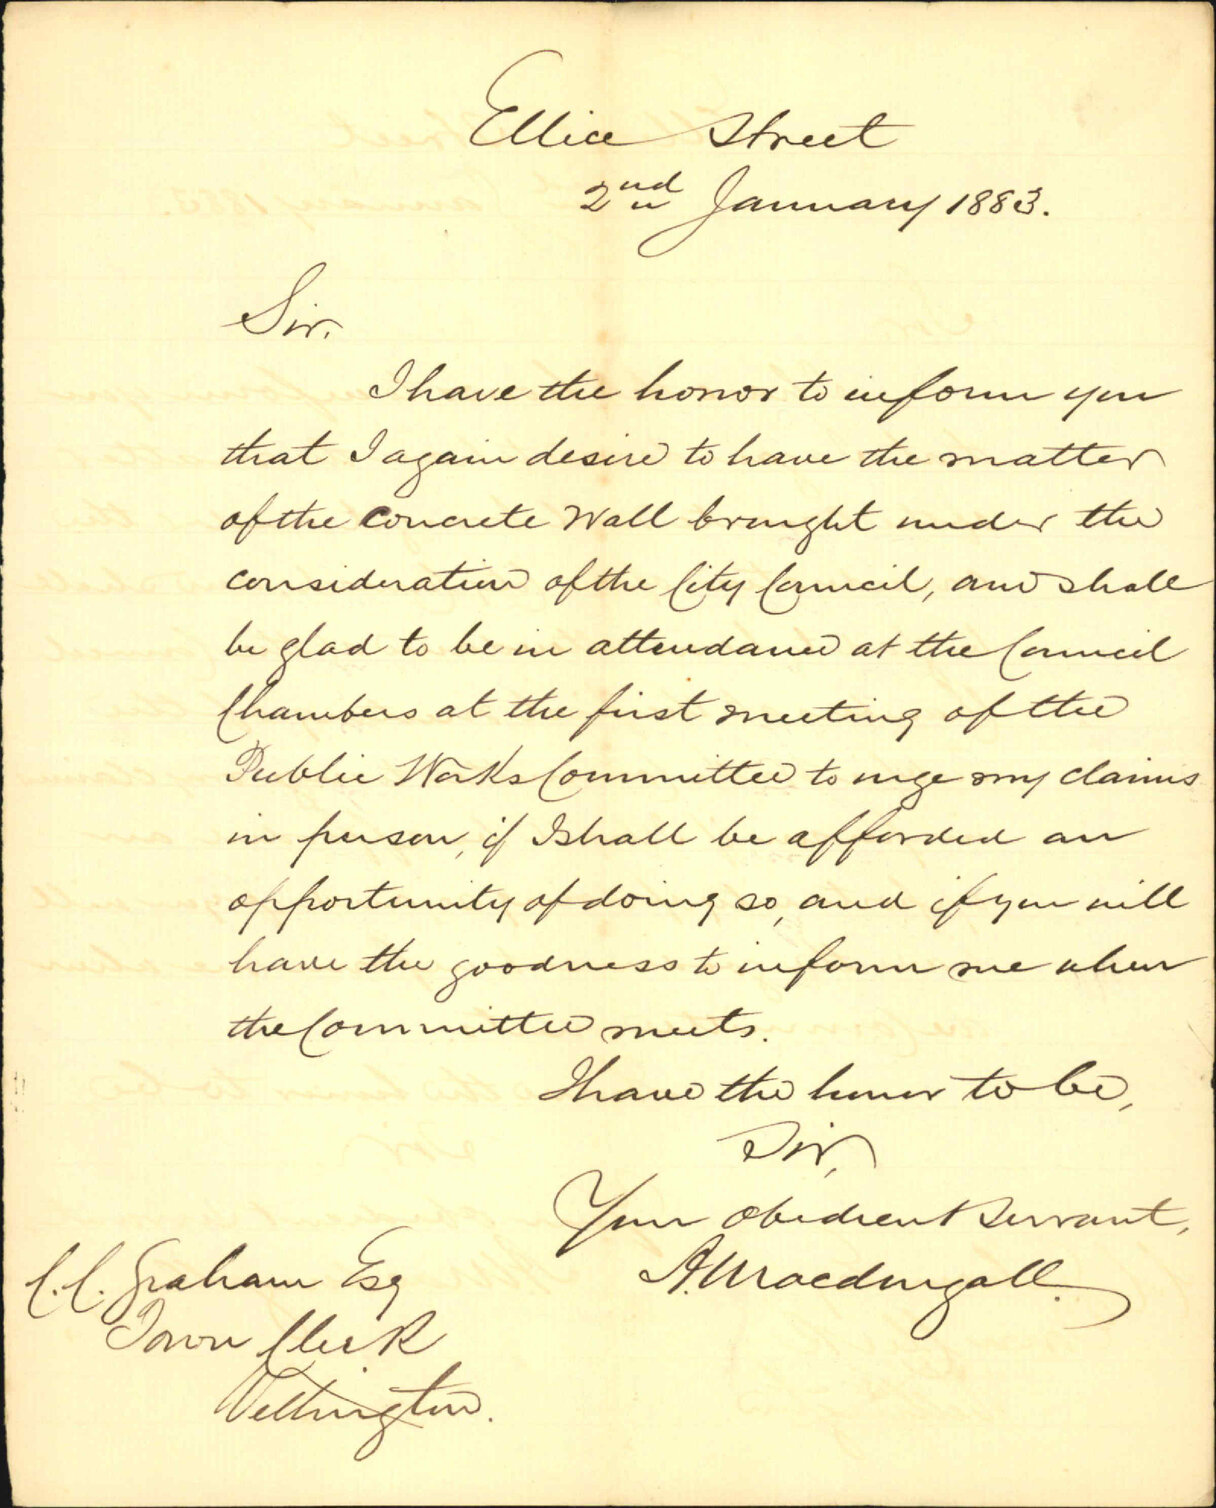 Ellice Street
2nd January 1883.
Sir,
I have the honor to inform you
that I again desire to have the matter
of the Concrete Wall brought under the
consideration of the City Council, and shall
be glad to be in attendance at the Council
Chambers at the first meeting of the
Public Works Committee to urge my claims
in person, if I shall be afforded an
opportunity of doing so, and if you will
have the goodness to inform me when
the Committee meets.
I have the honor to be,
Sir,
Your obedient servant,
A. Macdougall.
C.C. Graham Esq
Town Clerk
Wellington.